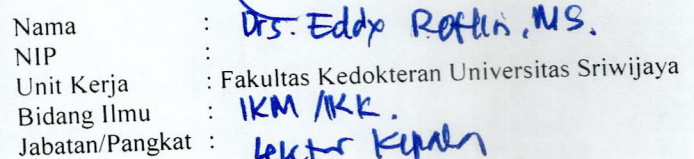 Nama : Drs. Eddy Roflin, MS.
NIP :
Unit Kerja : Fakultas Kedokteran Universitas Sriwijaya
Bidang Ilmu : IKM /IKK.
Jabatan/Pangkat : Lektor Kepala